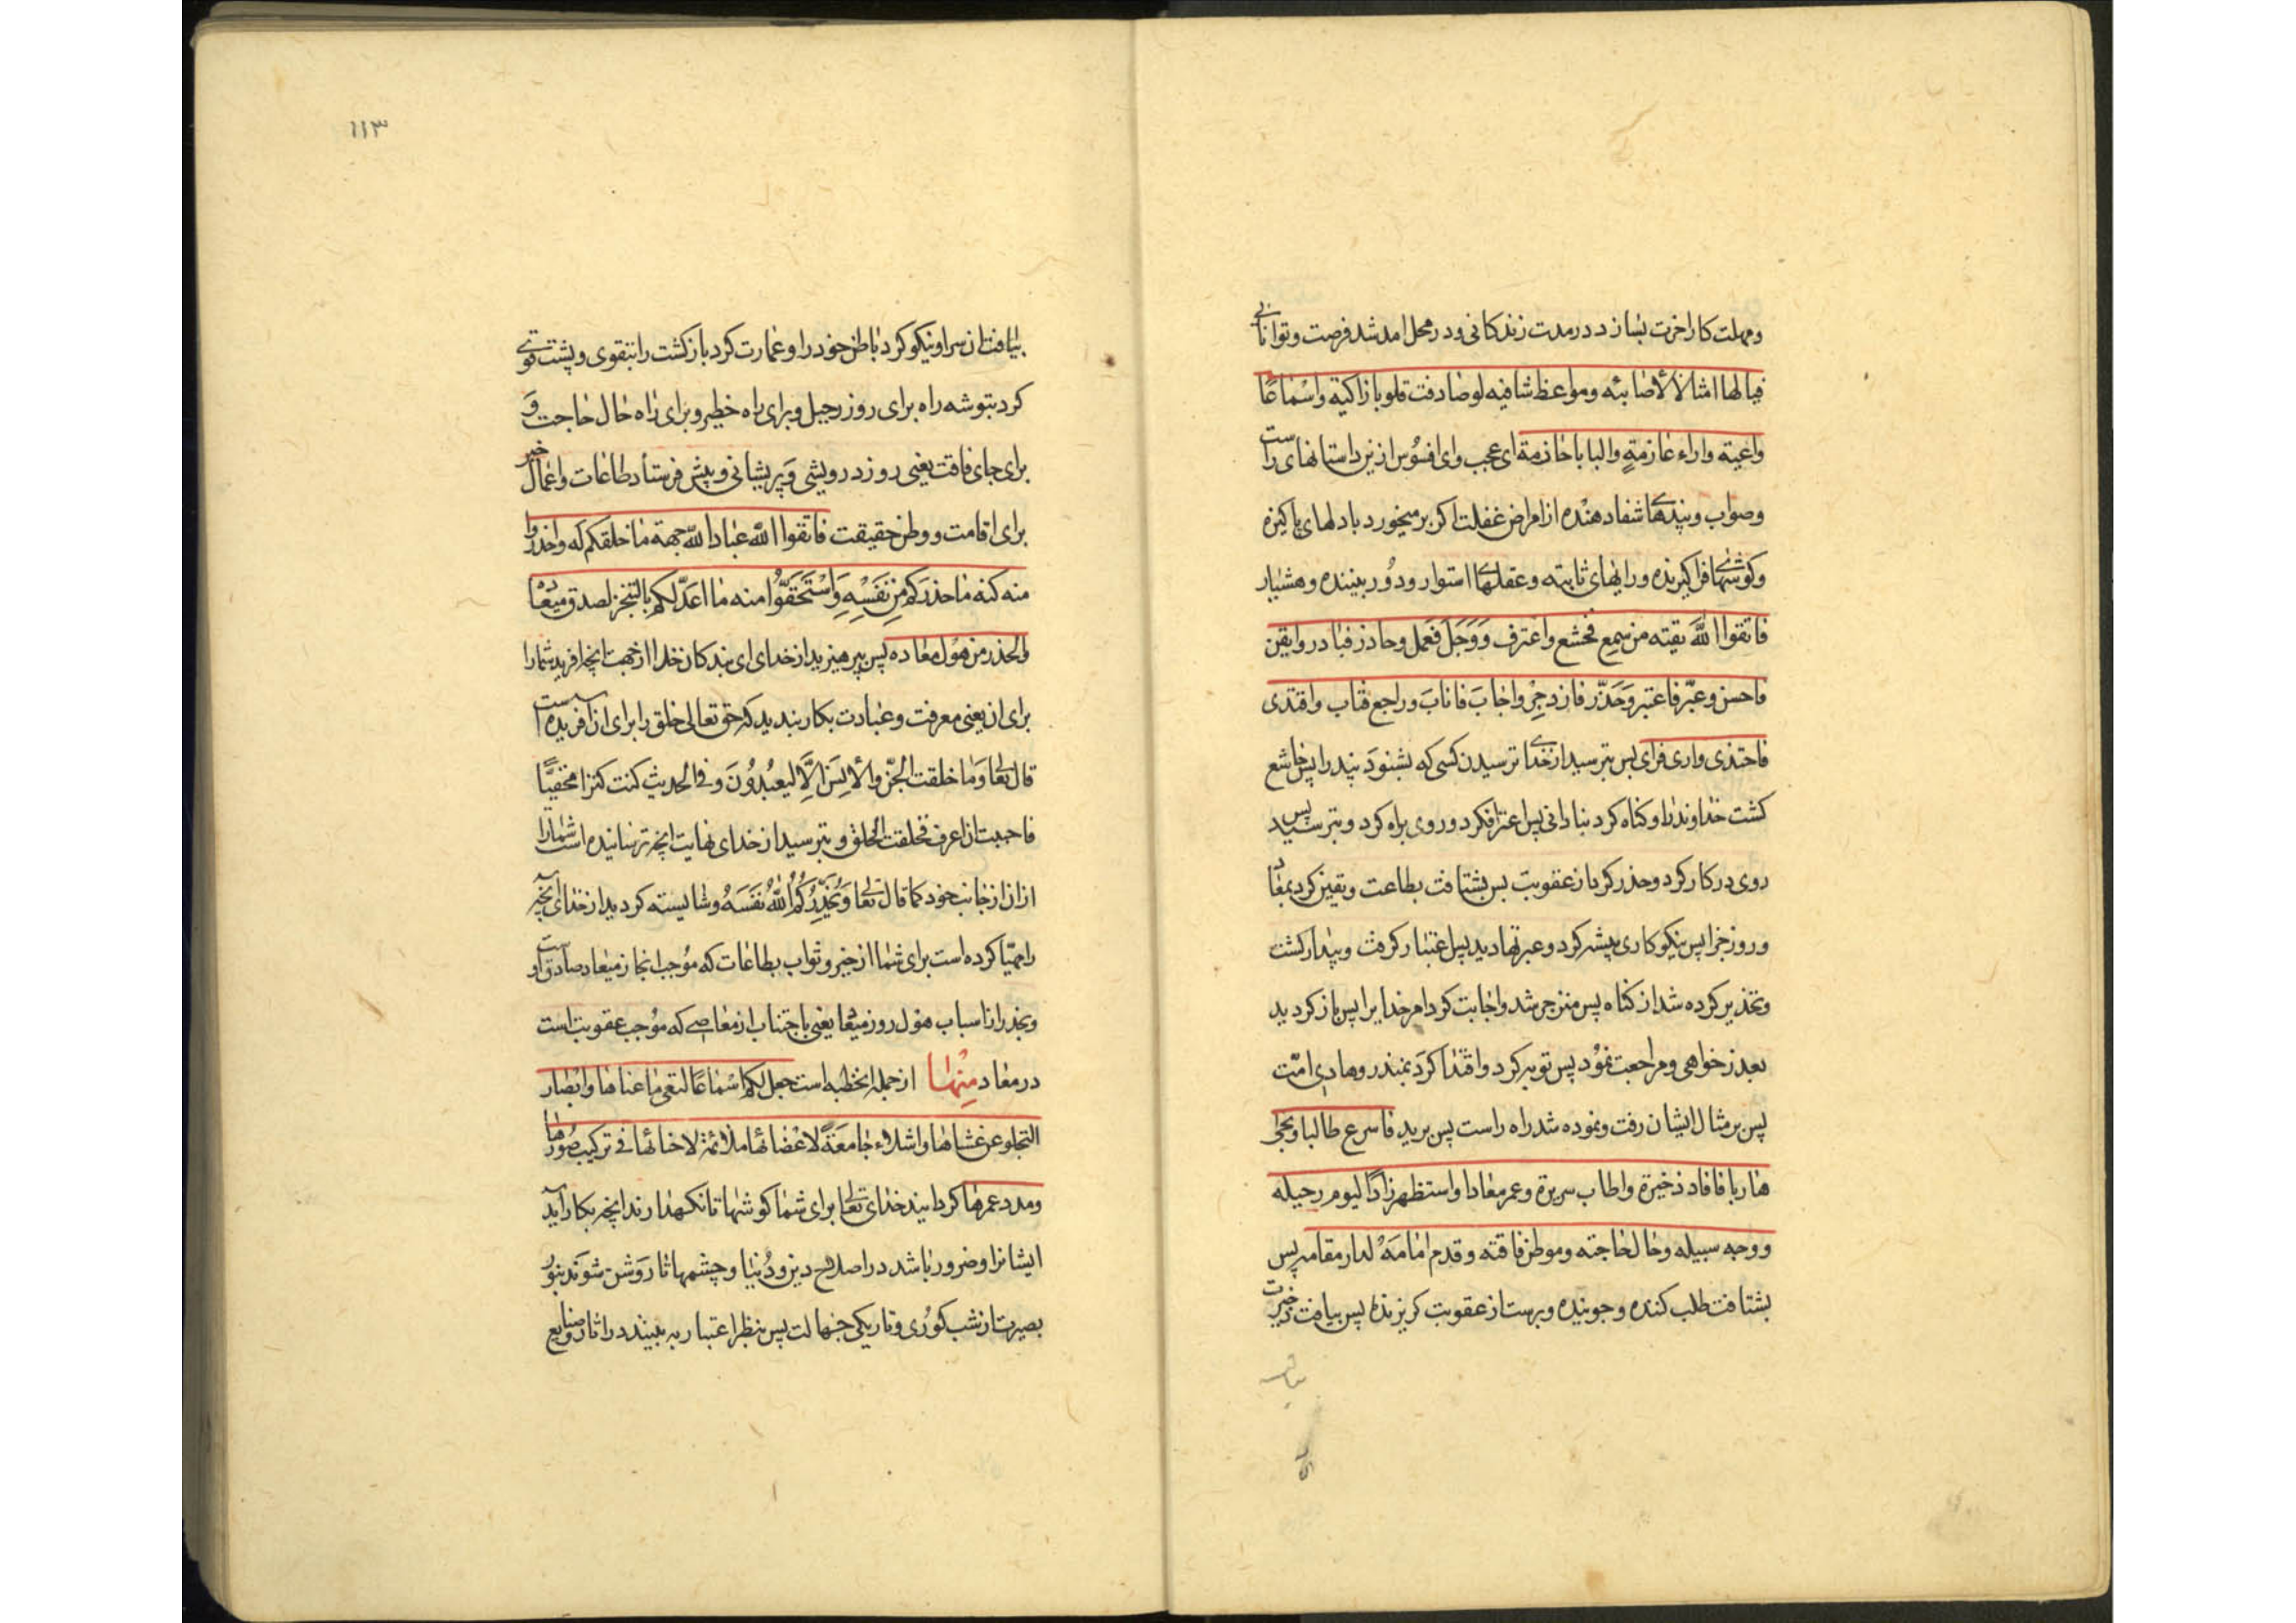 ومهلت کار اخرت بسازد در مدت زندکانی ودر محل امد شد فرصت وتوانائی
فیالها امثالا لاصائبه ومواعظ شافیه لو صادفت قلوبا زاکیة واسماعًا
واعیة واراء عازمةٍ والبابا حازمة ای عجب وای افسُوس از این داستانهای راست
وصواب وپندهای شفا دهنده از امراض غفلت اکر بر میخورد با دلهای پاکیزه
وکوشهای فراکیرنده ورایهای ثابته وعقلهای استوار ودُور بیننده وهشیار
فاتقوا اللّه تقیته من سمع فخشع واغترف وَوَجَلَ فَعَمل وحاذر فبادر وایقن
فاحسن وعبّر فاعتبر وَحَذّر فازدجر واجابَ فانابَ وراجع فتاب واقتدی
فاحتذی واری فرای پس بترسید از خدای ترسیدن کسی که بشنودَ پند را پس خاشع
کشت خداوند را وکناه کرد بنادانی پس اعتراف کرد وروی براه کرد وبترسید پس
روی در کار کرد وحذر کرد از عقوبت پس بشتافت بطاعت ویقین کرد بمعاد
وروز جزا پس نیکوکاری پیشه کرد وعبرتها دید پس اعتبار کرفت وبیدار کشت
وتحذیر کرده شد از کناه پس منزجر شد واجابت کرد امر خدایرا پس باز کردید
بعذر خواهی ومراجعت نمُود پس توبه کرد واقتدا کردَ بمنذر وهادی امّت
پس بر مثال ایشان رفت ونموده شد راه راست پس بدید فاسرع طالبا ونجی
هاربا فافاد ذخیرة واطاب سریرة وعمر معادا واستظهر زادًا لیوم رحیله
ووجه سبیله وحال حاجته وموطن فاقته وقدم امامَهُ لدار مقامه پس
بشتافت طلب کننده وجوینده وبرست از عقوبت کریزنده پس بیافت ذخیرت
۱۱۳
بیافت از سرا ونیکو کرد باطن خود را وعمارت کرد بازکشت را بتقوی وپشت قوی
کرد بتوشه راه برای روز رحیل وبرای راه خطیر وبرای راه حال حاجت وَ
برای جای فاقت یعنی روز درویشی وَپریشانی وپیش فرستاد طاعات واعمال خیر
برای اقامت ووطن حقیقت فاتقوا اللّه عباد اللّه جهة ما خلقکم له واحذروا
منه کنه ما حذرکم مِن نَفسِهِ وَاسْتَحَقّوُا منه ما اعَدَّ لکم بالتنجز لصدق میعاده
والحذر من هول معاده پس بپرهیزید از خدای ای بندکان خدا از جهت انچه افرید شما را
برای ان یعنی معرفت وعبادت بکار بندید که حق تعالی خلق را برای ان افریده است
قال تعا وَما خلقت الجنّ والانِسَ اِلاَّ لیعبُدُونَ وفی الحدیث کنت کنزا مخفیًّا
فاحببت ان اعرف فخلقت الخلق وبترسید از خدای نهایت انچه ترسانیده است شما را
از ان از جانب خود کما قال تعا وَیُحَذِّرُکُمُ اللّٰهُ نَفسَهُ وشایسته کردید از خدای انچه
را مهیّا کرده است برای شما از خیر وثواب بطاعات که موُجب انجاز میعاد صادق اوست
وبحذر از اسباب هول روز میعاد یعنی باجتناب از معاصی که موُجب عقوبت است
در معاد مِنْهٰا از جمله انخطبه است جعل لکم اسْماعًا لتعی ما عناها وابصار
التجلو عن غشاها واشلاء جامعَةً لاعْضائها ملائمة لاحنائها فی ترکیب صُورها
ومدد عمرها کردانید خدای تعا برای شما کوشها تا نکهدارند انچه بکار آید
ایشانرا وضرور باشد در اصلاح دین ودُنیا وچشمها تا روَشن شوَند بنور
بصیرت از شب کوُری وتاریکی جهالت پس بنظر اعتبار به بینند در اثار وصنایع